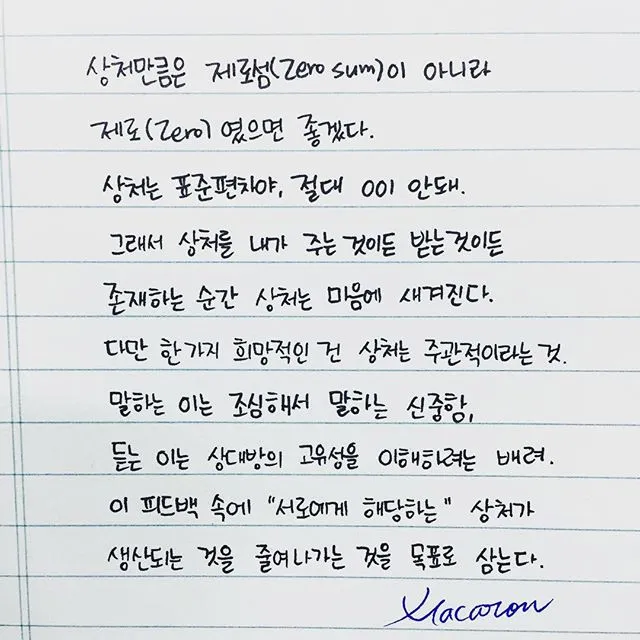 상처만큼은 제로섬(Zero sum)이 아니라
제로(Zero)였으면 좋겠다.
상처는 표준편차야, 절대 0이 안돼.
그래서 상처를 내가 주는 것이든 받는 것이든
존재하는 순간 상처는 마음에 새겨진다.
다만 한가지 희망적인 건 상처는 주관적이라는 것.
말하는 이는 조심해서 말하는 신중함,
듣는 이는 상대방의 고유성을 이해하려는 배려.
이 피드백 속에 "서로에게 해당하는" 상처가
생산되는 것을 줄여나가는 것을 목표로 삼는다.
Macaron